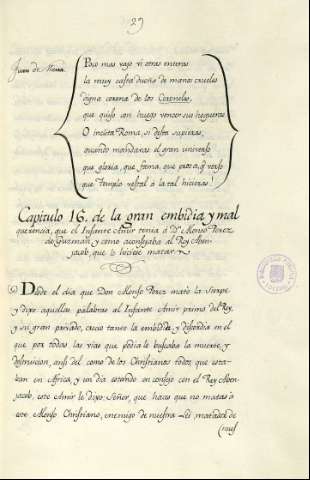 29
Juan de Mena.
Poco mas vajo vi otras enteras
la muy casta dueña de manos crueles
digna corona de los Coroneles,
que quiso con fuego vencer sus hogueras
O inclita Roma, si desta supieras,
quando mandavas el gran universo
que gloria, que fama, que prosa, q̃ verso
que Templo vestal à la tal hicieras!
Capitulo 16. de la gran embidia y mal
querencia, que el Infante Amir tenia à Dn. Alonso Perez
de Guzman, y como aconsejava al Rey Aben
jacob, que lo hiciese matar.
Desde el dia que Don Alonso Perez matò la sierpe
y dijo aquellas palabras al Infante Amir primo del Rey,
y su gran privado, crecio tanto la embidia, y discordia en el
que por todas las vias que podia le buscaba la muerte, y
destruicion, ansi del como de los Christianos todos, que esta-
ban en Africa, y un dia estando en consejo con el Rey Aben
jacob, este Amir le dijo: Señor, que haces que no matas à
este Alonso Christiano, enemigo de nuestra Lei, matador de